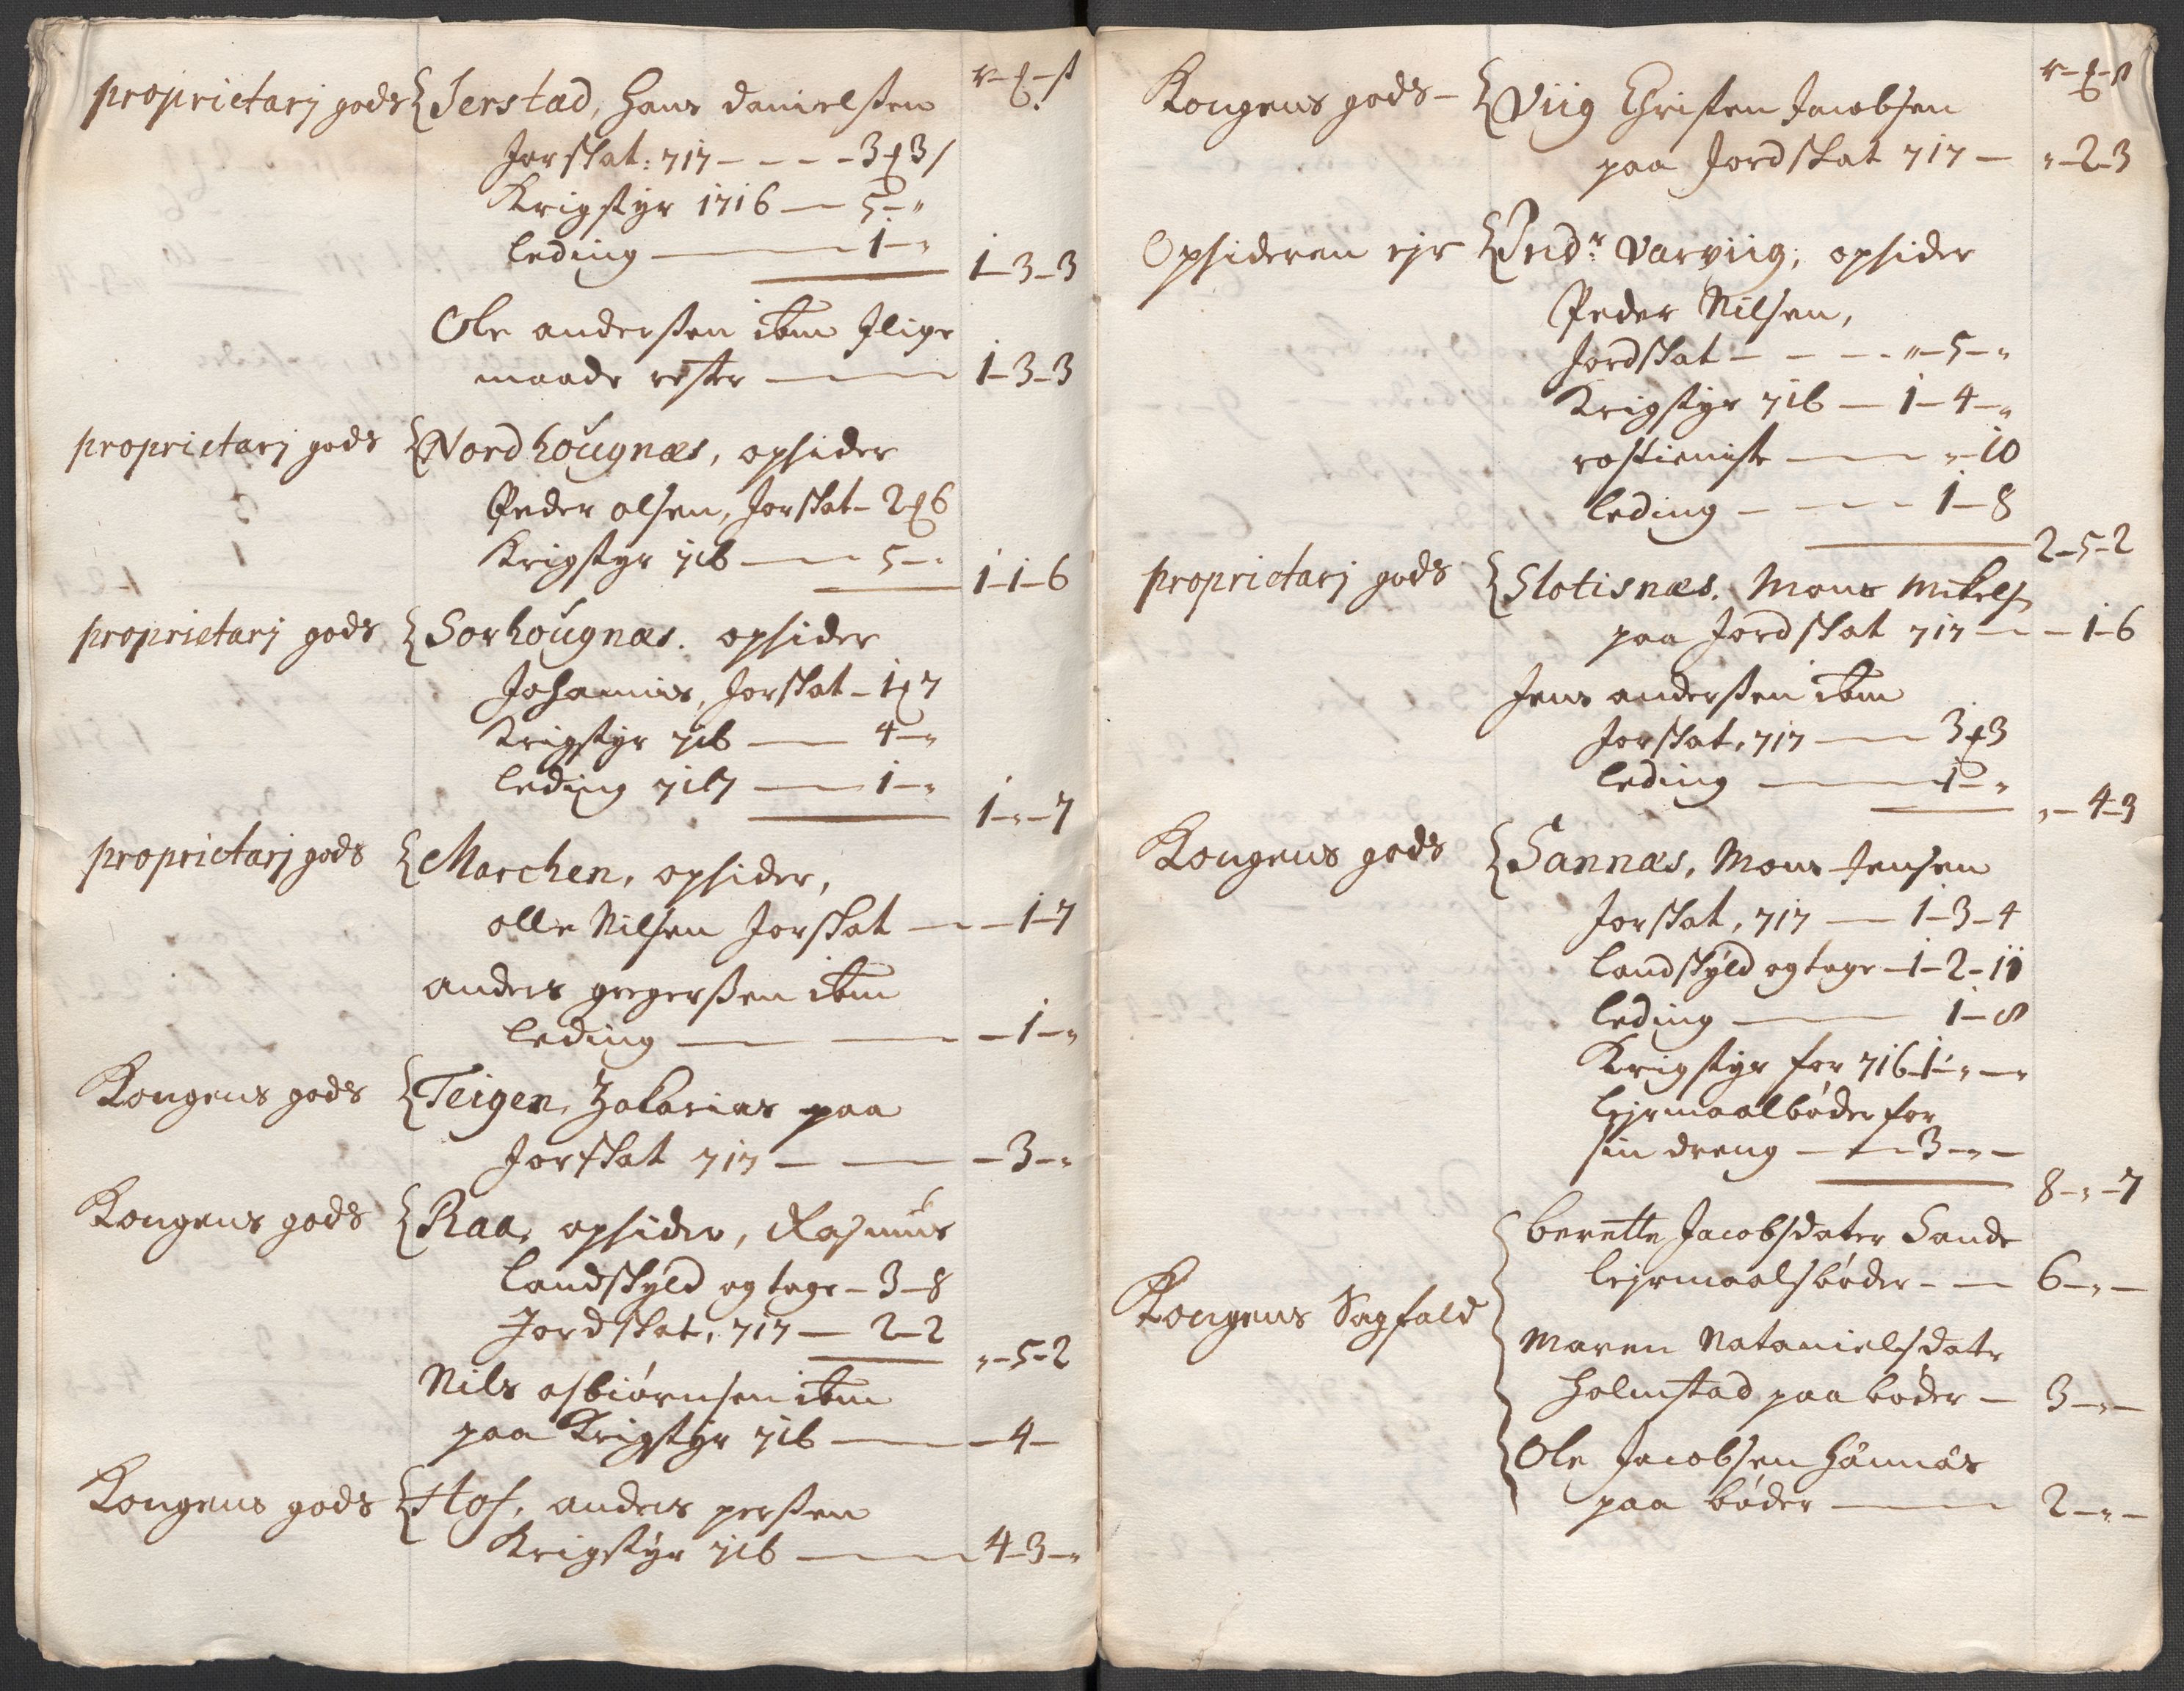 r - ₰ - s
proprietarj gods { Jerstad, Hans danielsen
Jorskat: 717 - - - - 3 ₰ 3 /
Krigstyr 1716 — 5 - "
leding — 1 - "
1 - 3 - 3
Ole andersen ibm Jlige
maade rester — 1 - 3 - 3
proprietarj gods { Nordhougnæs, opsider
Peder olsen, Jorskat - 2 ₰ 6
Krigstyr 716 — 5 - "
1 - 1 - 6
proprietarj gods { Sorhougnæs. opsider
Johannis, Jorskat - 1 ₰ 7
Krigstyr 716 — 4 - "
leding 7167 — 1 - "
1 - " - 7
proprietarj gods { Marchen, opsider,
olle Nilsen Jorskat — - 1 - 7
anders gregersen ibm
leding — - 1 - "
Kongens gods { Teigen, Zakarias paa
Jorskat 717 — - 3 - "
Kongens gods { Raa, opsider, Rasmus
landskyld og tage - 3 - 8
Jordskat, 717 — 2 - 2
" - 5 - 2
Nils asbiørnsen ibm
paa Krigstyr 716 — - 4 -
Kongens gods { Hof, anders persen
Krigstyr 716 — 4 - 3 - "
r - ₰ - s
Kongens gods - { Viig Christen Jacobsen
paa Jordskat 717 — " - 2 - 3
Opsideren ejr { Indr Varviig, opsider
Peder Nilsen,
Jordskat - - - - " - 5 - "
Krigstyr 716 — 1 - 4 - "
rostieniste — " - 10
leding - - - 1 - 8
2 - 5 - 2
proprietarj gods { Slotisnæs. Mons Mikels
paa Jordskat 717 — - 1 - 6
Jens andersen ibm
Jorskat, 717 — 3 ₰ 3
leding — 1 - "
" - 4 - 3
Kongens gods { Sannæs, Mons Jensen
Jorskat, 717 — 1 - 3 - 4
landskyld og tage - 1 - 2 - 11
leding — 1 - 8
Krigstyr for 716 - 1 - " - "
lejrmaalbøder for
sin dreng — 3 - " -
8 - " - 7
berette Jacobsdater Sande
lejrmaalsbøder - — 6 - " -
Kongens Sagfald
Maren Natanielsdatr
Holmstad paa bøder — 3 - " -
Ole Jacobsen Hannæs
paa bøder — 2 - " -